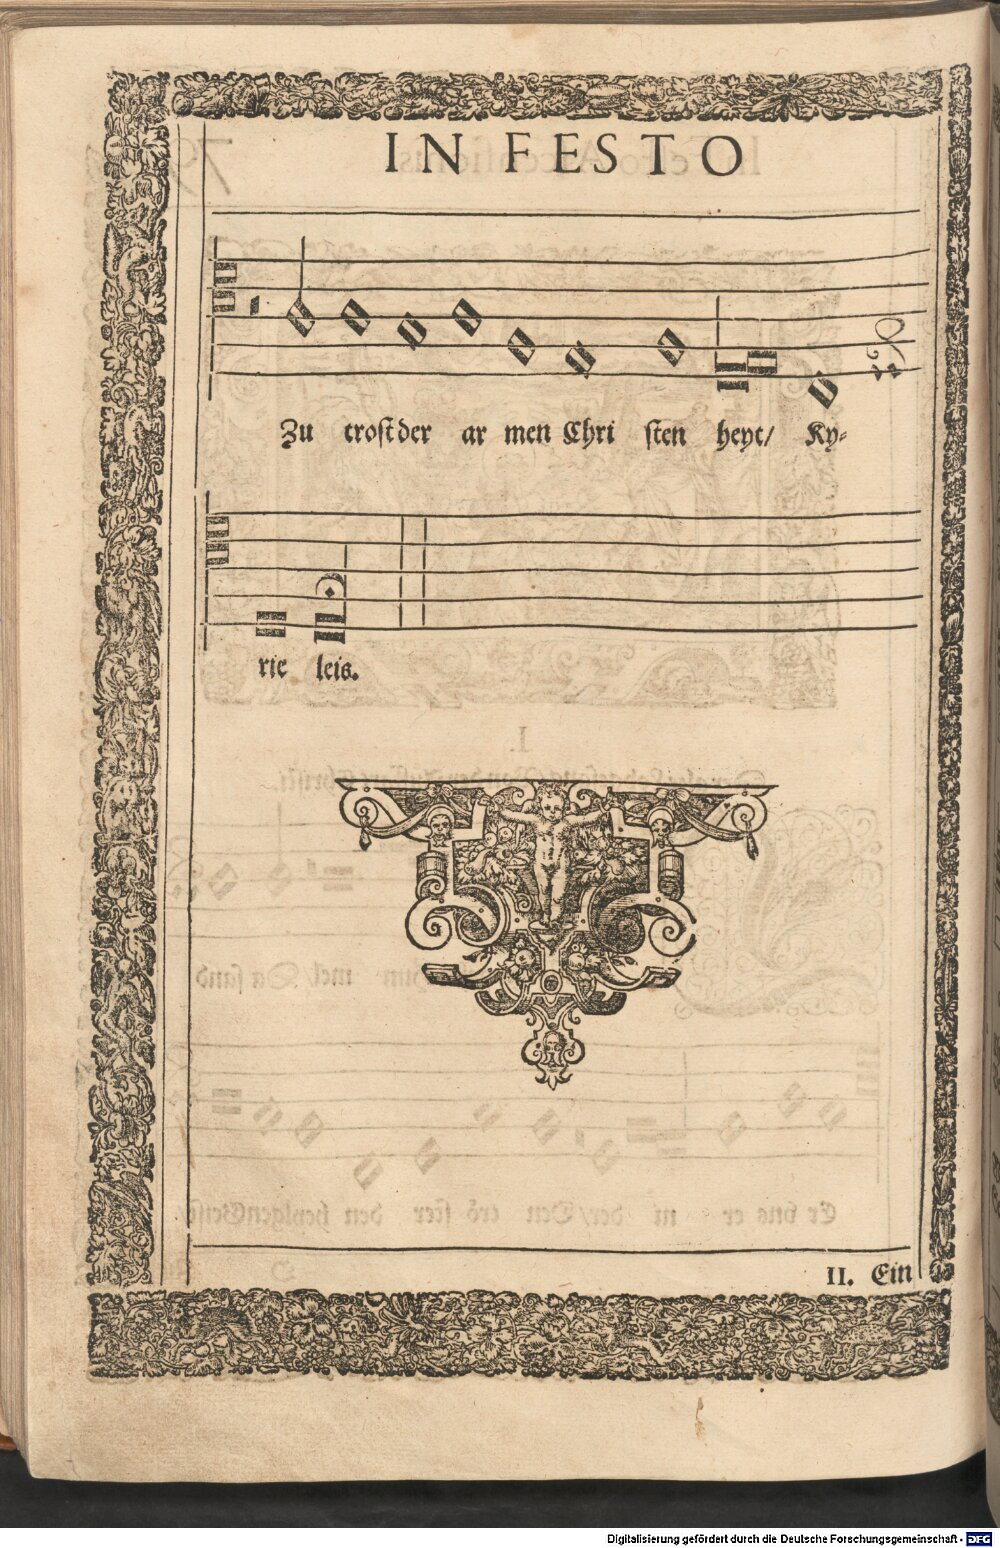 IN FESTO
Zu trost der ar men Chri sten heyt/ Ky-
rie leis.
II. Ein
Digitalisierung gefördert durch die Deutsche Forschungsgemeinschaft - DFG